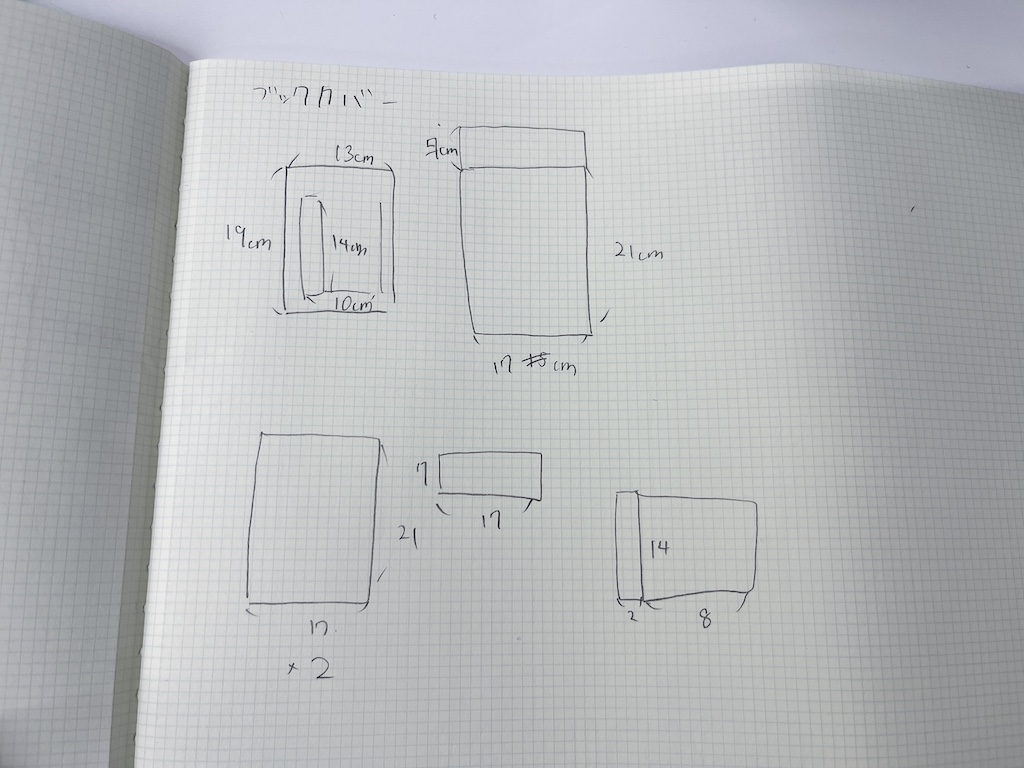 ブックカバー
13cm
19cm
14cm
10cm
cm
21cm
17 cm
21
17
× 2
7
17
14
2
8